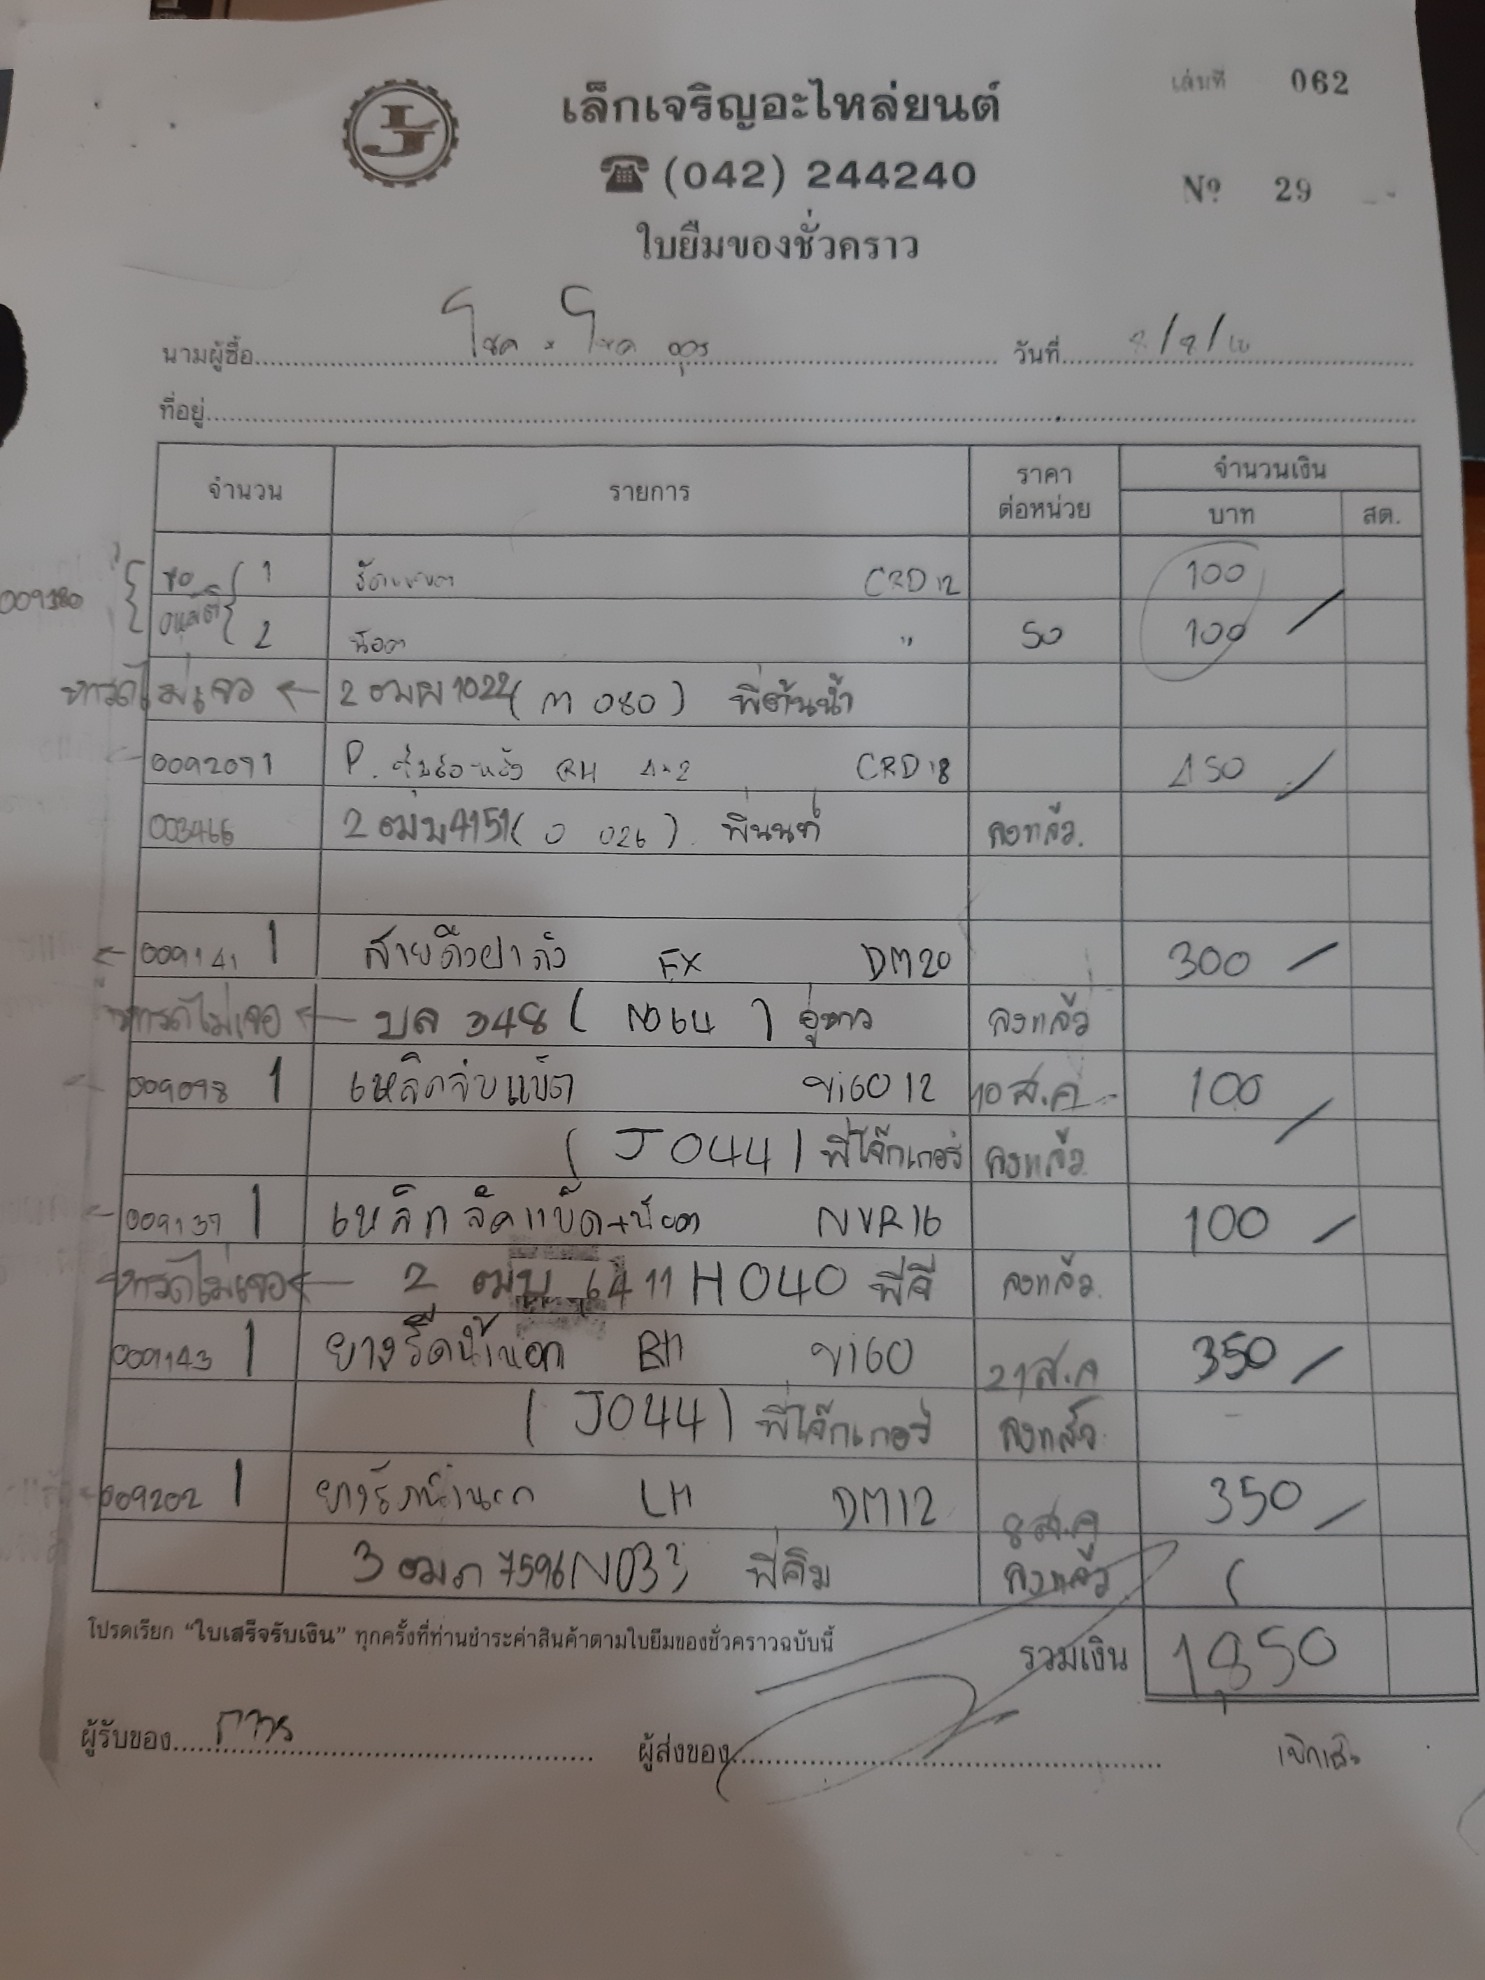 เล่มที่ 062
เล็กเจริญอะไหล่ยนต์
(042) 244240
Nº 29
ใบยืมของชั่วคราว
นามผู้ซื้อ โชค x โชค อุดร วันที่
ที่อยู่
จำนวน รายการ ราคาต่อหน่วย จำนวนเงิน
บาท สต.
009380 1 CRD12 100
2 น๊อต " 50 100
หารถไม่เจอ ← 2 ฒผ1022 (M 080) พี่ต้นน้ำ
0092091 P. RH 4x2 CRD18 450
003466 4151 (O 026) พี่นนท์ ลงแล้ว
009141 1 สายดึงฝาถัง EX DM20 300
หารถไม่เจอ ← บล 348 (N064) ลงแล้ว
009098 1 เหล็กจับแบ็ต VIGO12 10 ส.ค 100
(J044) พี่โจ๊กเกอร์ ลงแล้ว
009137 1 เหล็กรัดแบ็ต+น๊อต NVR16 100
หารถไม่เจอ ← 6411 H040 พี่จี ลงแล้ว
009143 1 ยางรีดน้ำนอก RH VIGO 21 ส.ค 350
(J044) พี่โจ๊กเกอร์ ลงแล้ว
009202 1 ยางรีดน้ำนอก LH DM12 8 ส.ค 350
7596 N033 พี่คิม ลงแล้ว
โปรดเรียก "ใบเสร็จรับเงิน" ทุกครั้งที่ท่านชำระค่าสินค้าตามใบยืมของชั่วคราวฉบับนี้
รวมเงิน 1,850
ผู้รับของ ผู้ส่งของ